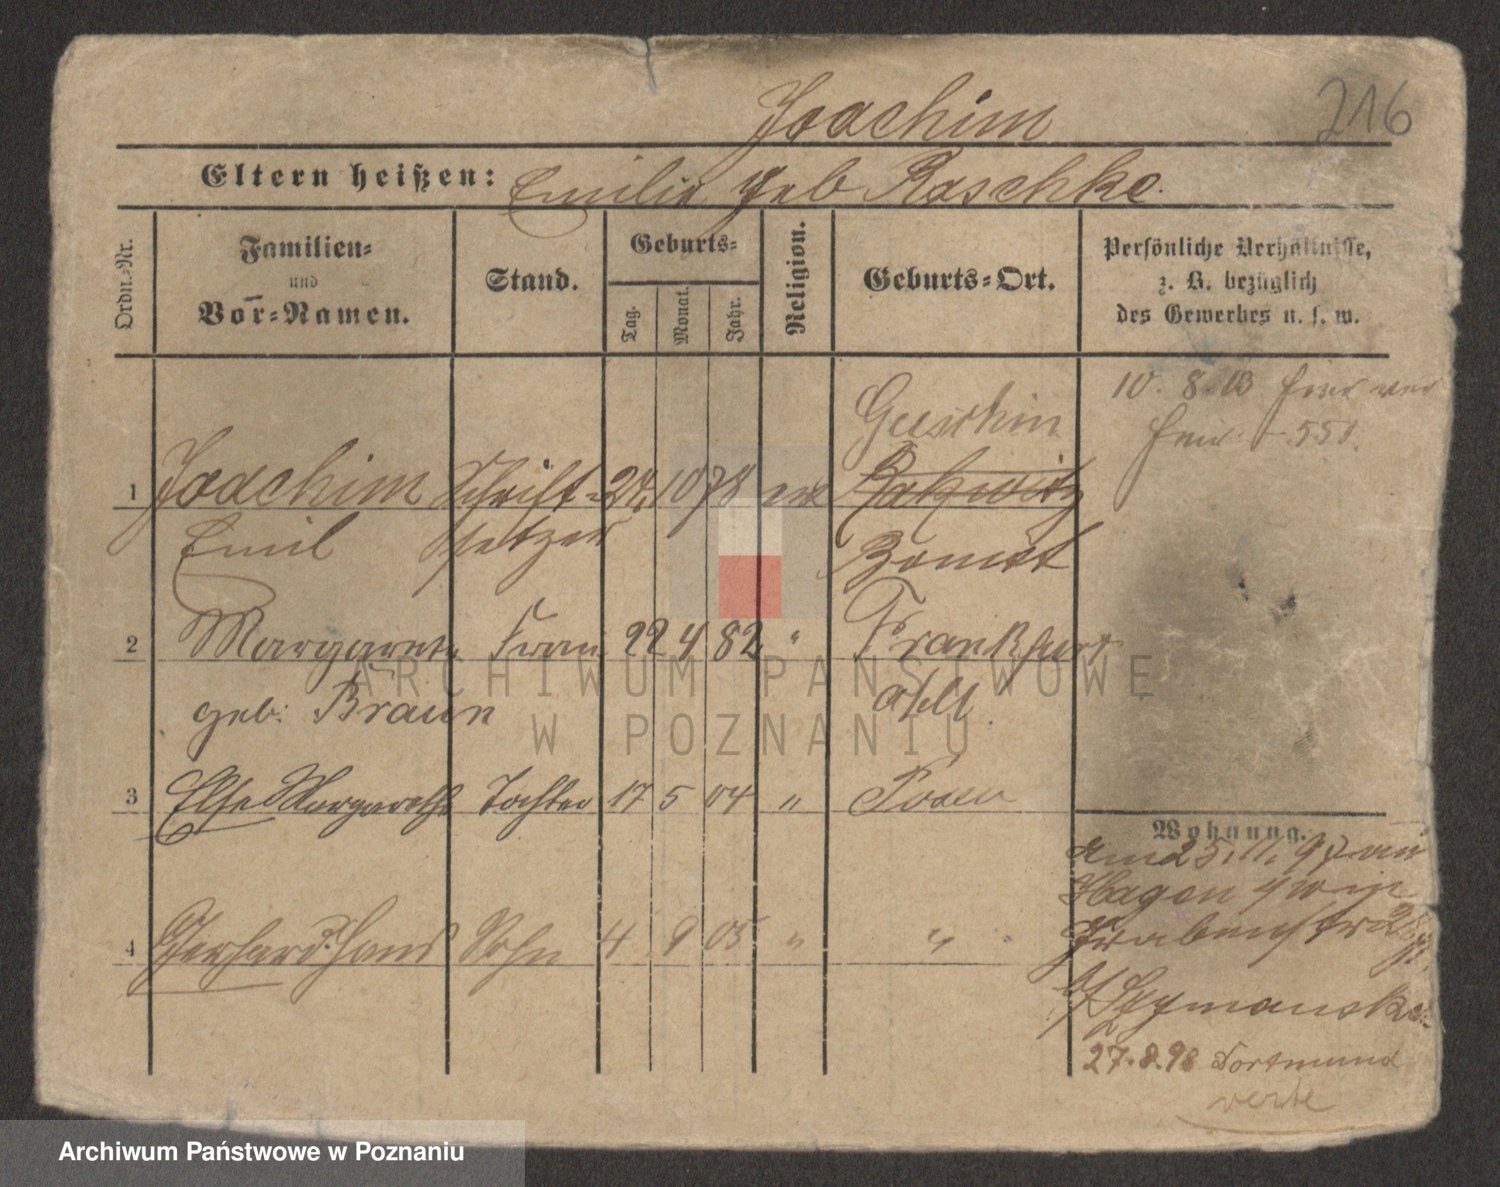 216
Joachim
Eltern heißen: Emilie geb Raschke.
Ordn.-Nr.
Familien-
und
Vor-Namen.
Stand.
Geburts-
Tag.
Monat.
Jahr.
Religion.
Geburts-Ort.
Persönliche Verhältnisse,
z. B. bezüglich
des Gewerbes u. s. w.
10. 8. 03
551.
1 Joachim Schrift- 24 10 78
Emil setzer Bomst
2 Margarete Frau 22 4 82 " Frankfurt
geb: Braun a/M
3 Else Margarethe Tochter 17 5 04 " Posen
4 Gerhard Hans Sohn 4 9 05 " "
Wohnung.
25.11.97
Hagen
Grabenstra
b/ Szymanski
27.8.98 Dortmund
verte
ARCHIWUM PAŃSTWOWE
W POZNANIU
Archiwum Państwowe w Poznaniu